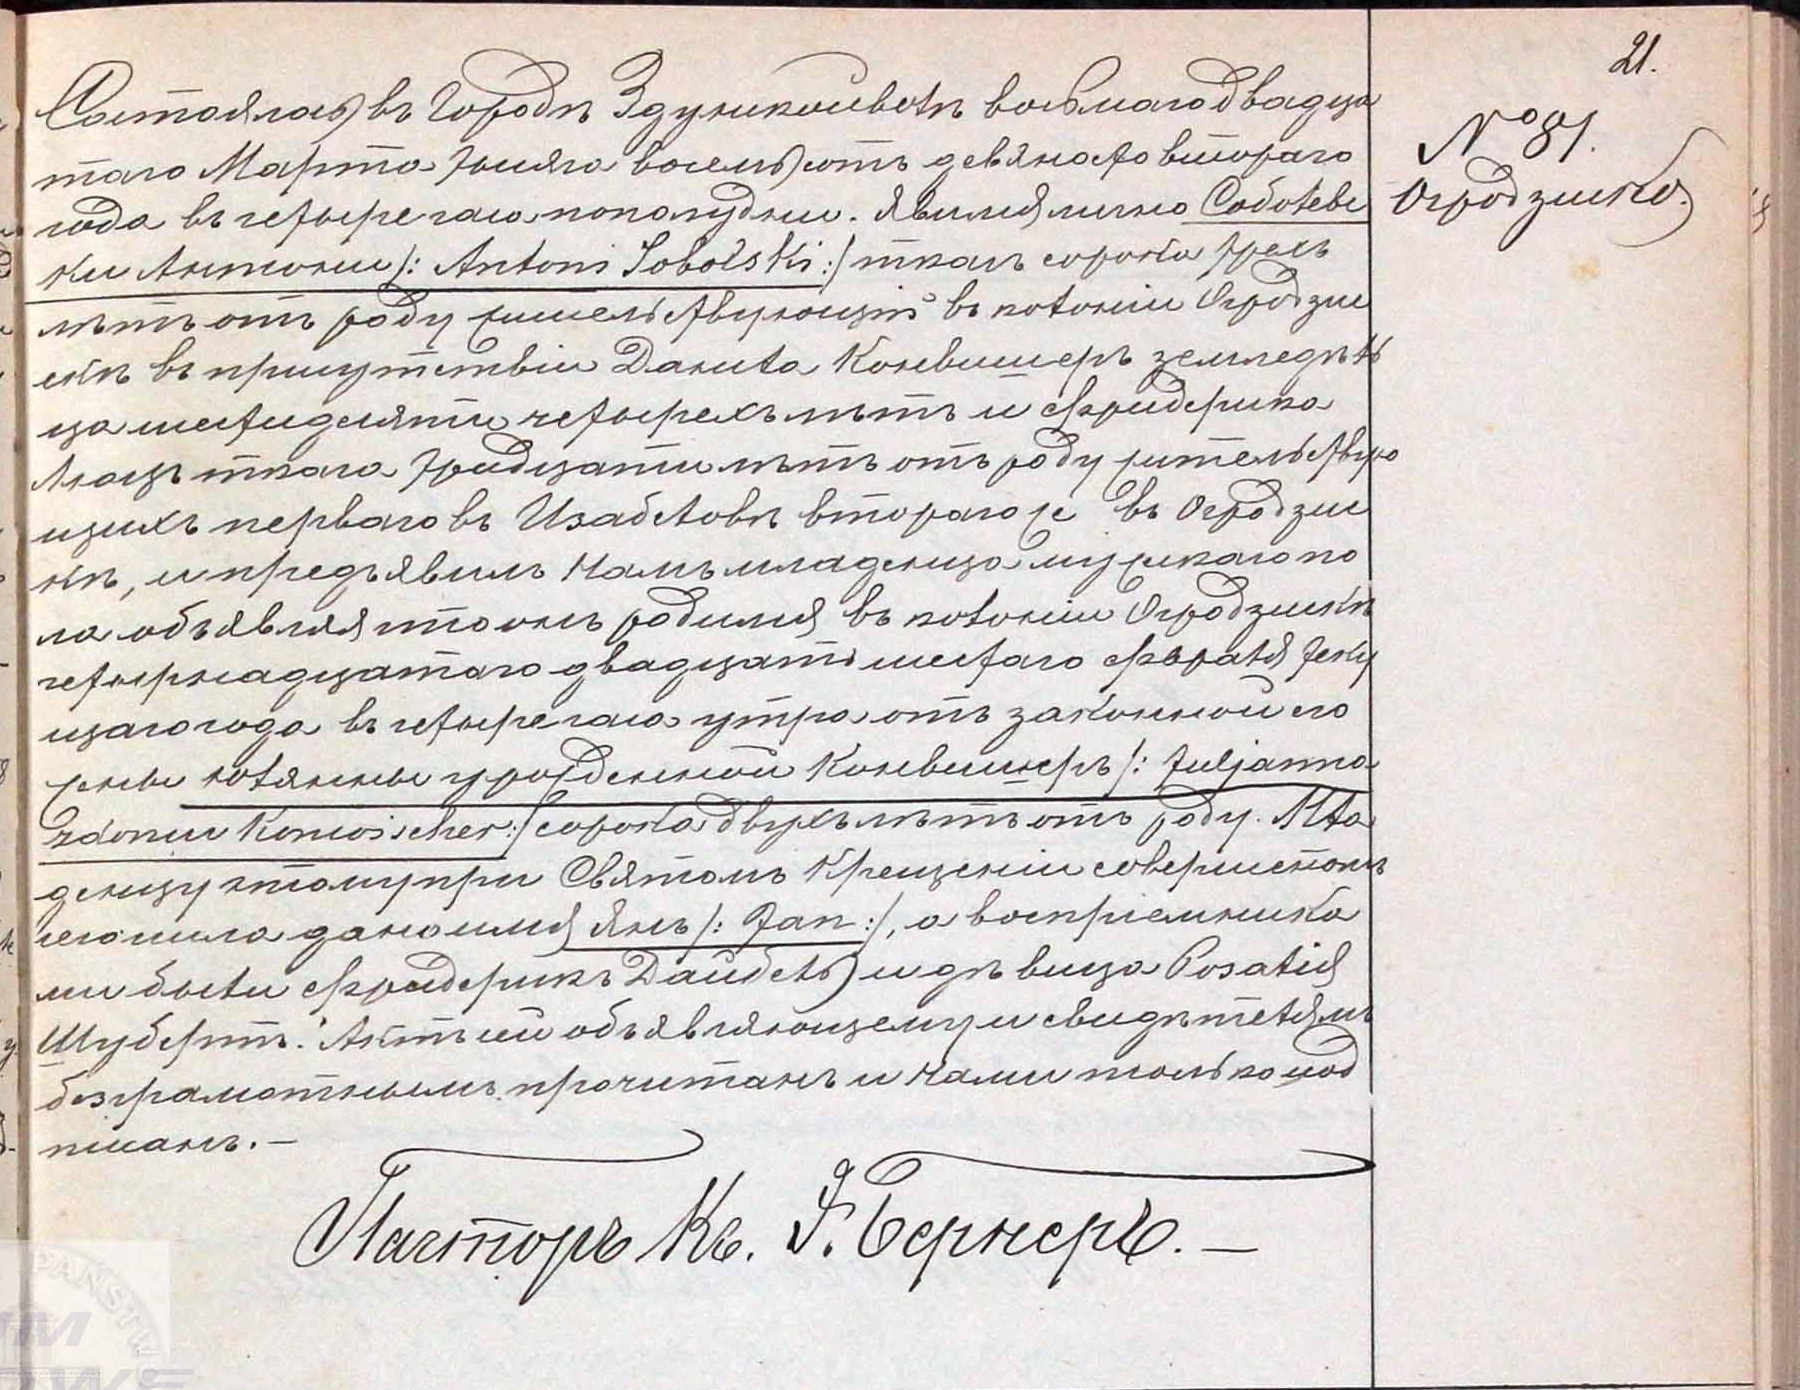 21.
№ 81.
Огродзиско.
Состоялось въ Городѣ Здунской Волѣ восьмаго двадца
таго Марта тысяча восемьсотъ девяносто втораго
года въ четыре часа пополудни. Явился лично Соболев
ски Антони /: Antoni Sobolski :/ ткачъ сорока трехъ
лѣтъ отъ роду жительствующій въ колоніи Огродзис
скѣ въ присутствіи Данила Коневишеръ земледѣль
ца шестидесяти четырехъ лѣтъ и Фридерика
ткача тридцати лѣтъ отъ роду жительствую
щихъ перваго въ Изабеловѣ втораго же въ Огродзис
кѣ, и предъявилъ намъ младенца мужскаго по
ла объявляя что онъ родился въ колоніи Огродзискѣ
четырнадцатаго двадцать шестаго Февраля теку
щаго года въ четыре часа утра отъ законной его
жены Юлянны урожденной Коневишеръ /: Juljanna
zdomu Konwischer :/ сорока двухъ лѣтъ отъ роду. Мла
денцу этому при Святомъ Крещеніи совершенномъ
сего числа дано имя Янъ /: Jan :/, а воспріемника
ми были Фридерикъ Дайбель и дѣвица Розалія
Шубертъ. Актъ сей объявляющему и свидѣтелямъ
безграмотнымъ прочитанъ и нами только под
писанъ. —
Пасторъ Кс. Ф. Бернеръ. —